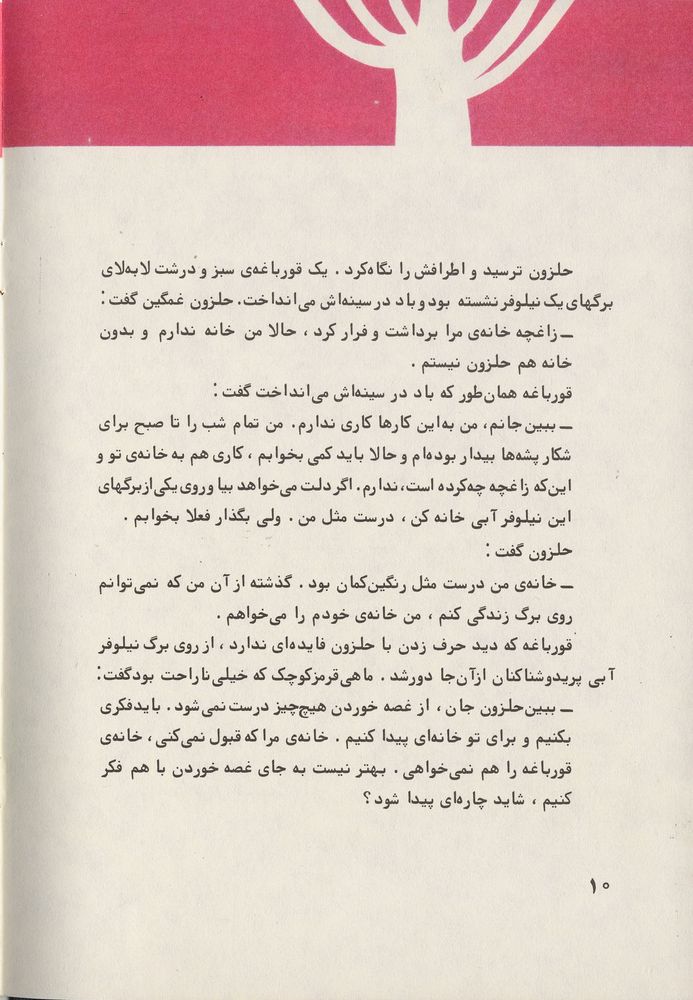 حلزون ترسید و اطرافش را نگاه‌کرد . یک قورباغه‌ی سبز و درشت لابه‌لای
برگهای یک نیلوفر نشسته بود و باد در سینه‌اش می‌انداخت. حلزون غمگین گفت :
ــ زاغچه خانه‌ی مرا برداشت و فرار کرد ، حالا من خانه ندارم و بدون
خانه هم حلزون نیستم .
قورباغه همان‌طور که باد در سینه‌اش می‌انداخت گفت :
ــ ببین جانم، من به‌این کارها کاری ندارم. من تمام شب را تا صبح برای
شکار پشه‌ها بیدار بوده‌ام و حالا باید کمی بخوابم ، کاری هم به خانه‌ی تو و
این‌که زاغچه چه‌کرده است، ندارم. اگر دلت می‌خواهد بیا و روی یکی از برگهای
این نیلوفر آبی خانه کن ، درست مثل من . ولی بگذار فعلا بخوابم .
حلزون گفت :
ــ خانه‌ی من درست مثل رنگین‌کمان بود . گذشته از آن من که نمی‌توانم
روی برگ زندگی کنم ، من خانه‌ی خودم را می‌خواهم .
قورباغه که دید حرف زدن با حلزون فایده‌ای ندارد ، از روی برگ نیلوفر
آبی پرید و شناکنان از آن‌جا دور شد . ماهی قرمز کوچک که خیلی ناراحت بود گفت :
ــ ببین حلزون جان ، از غصه خوردن هیچ‌چیز درست نمی‌شود . باید فکری
بکنیم و برای تو خانه‌ای پیدا کنیم . خانه‌ی مرا که قبول نمی‌کنی ، خانه‌ی
قورباغه را هم نمی‌خواهی . بهتر نیست به جای غصه خوردن با هم فکر
کنیم ، شاید چاره‌ای پیدا شود ؟
۱۰